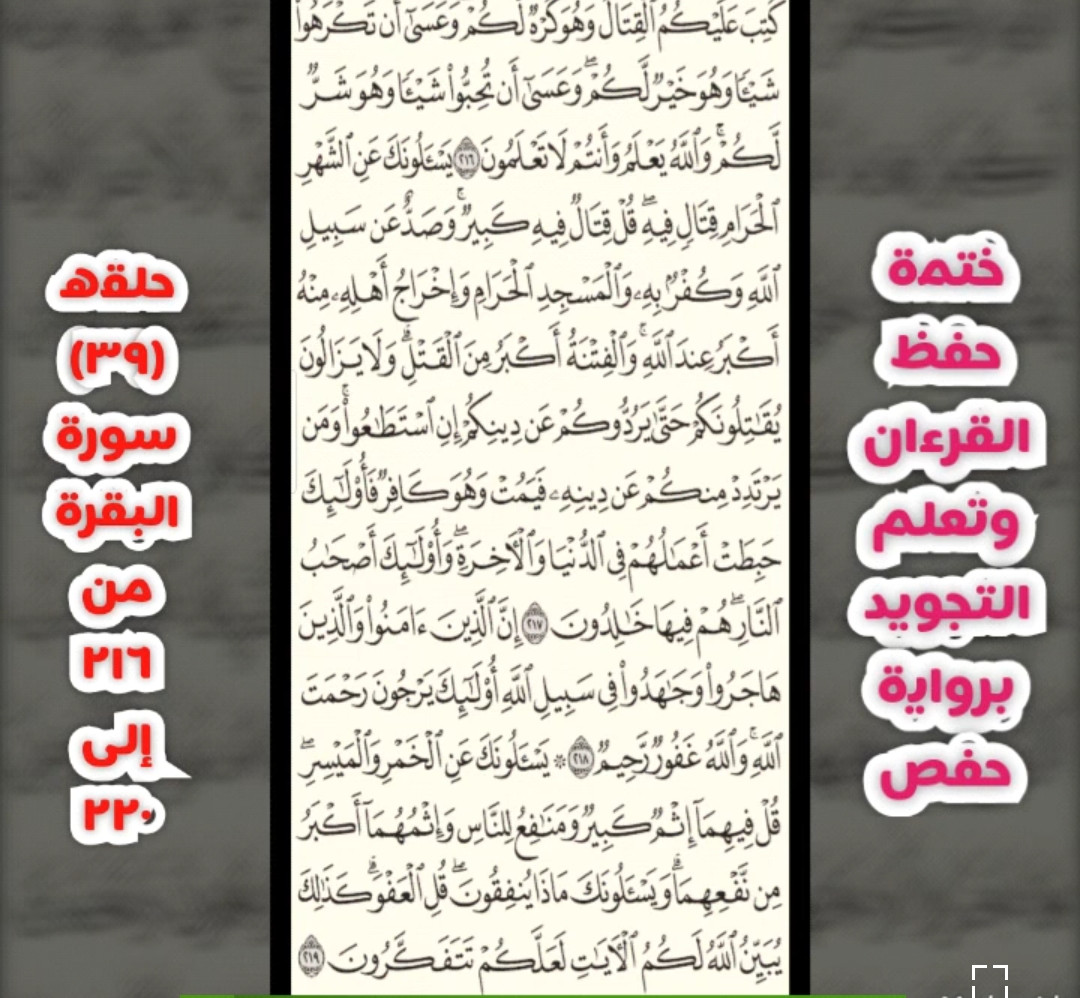 ختمة
حفظ
القرءان
وتعلم
التجويد
برواية
حفص
كُتِبَ عَلَيۡكُمُ ٱلۡقِتَالُ وَهُوَ كُرۡهٞ لَّكُمۡۖ وَعَسَىٰٓ أَن تَكۡرَهُواْ
شَيۡـٔٗا وَهُوَ خَيۡرٞ لَّكُمۡۖ وَعَسَىٰٓ أَن تُحِبُّواْ شَيۡـٔٗا وَهُوَ شَرّٞ
لَّكُمۡۚ وَٱللَّهُ يَعۡلَمُ وَأَنتُمۡ لَا تَعۡلَمُونَ ٢١٦ يَسۡـَٔلُونَكَ عَنِ ٱلشَّهۡرِ
ٱلۡحَرَامِ قِتَالٖ فِيهِۖ قُلۡ قِتَالٞ فِيهِ كَبِيرٞۚ وَصَدٌّ عَن سَبِيلِ
ٱللَّهِ وَكُفۡرُۢ بِهِۦ وَٱلۡمَسۡجِدِ ٱلۡحَرَامِ وَإِخۡرَاجُ أَهۡلِهِۦ مِنۡهُ
أَكۡبَرُ عِندَ ٱللَّهِۚ وَٱلۡفِتۡنَةُ أَكۡبَرُ مِنَ ٱلۡقَتۡلِۗ وَلَا يَزَالُونَ
يُقَٰتِلُونَكُمۡ حَتَّىٰ يَرُدُّوكُمۡ عَن دِينِكُمۡ إِنِ ٱسۡتَطَٰعُواْۚ وَمَن
يَرۡتَدِدۡ مِنكُمۡ عَن دِينِهِۦ فَيَمُتۡ وَهُوَ كَافِرٞ فَأُوْلَٰٓئِكَ
حَبِطَتۡ أَعۡمَٰلُهُمۡ فِي ٱلدُّنۡيَا وَٱلۡأٓخِرَةِۖ وَأُوْلَٰٓئِكَ أَصۡحَٰبُ
ٱلنَّارِۖ هُمۡ فِيهَا خَٰلِدُونَ ٢١٧ إِنَّ ٱلَّذِينَ ءَامَنُواْ وَٱلَّذِينَ
هَاجَرُواْ وَجَٰهَدُواْ فِي سَبِيلِ ٱللَّهِ أُوْلَٰٓئِكَ يَرۡجُونَ رَحۡمَتَ
ٱللَّهِۚ وَٱللَّهُ غَفُورٞ رَّحِيمٞ ٢١٨ ۞ يَسۡـَٔلُونَكَ عَنِ ٱلۡخَمۡرِ وَٱلۡمَيۡسِرِۖ
قُلۡ فِيهِمَآ إِثۡمٞ كَبِيرٞ وَمَنَٰفِعُ لِلنَّاسِ وَإِثۡمُهُمَآ أَكۡبَرُ
مِن نَّفۡعِهِمَاۗ وَيَسۡـَٔلُونَكَ مَاذَا يُنفِقُونَۖ قُلِ ٱلۡعَفۡوَۗ كَذَٰلِكَ
يُبَيِّنُ ٱللَّهُ لَكُمُ ٱلۡأٓيَٰتِ لَعَلَّكُمۡ تَتَفَكَّرُونَ ٢١٩
حلقه
(٣٩)
سورة
البقرة
من
٢١٦
إلى
٢٢٠